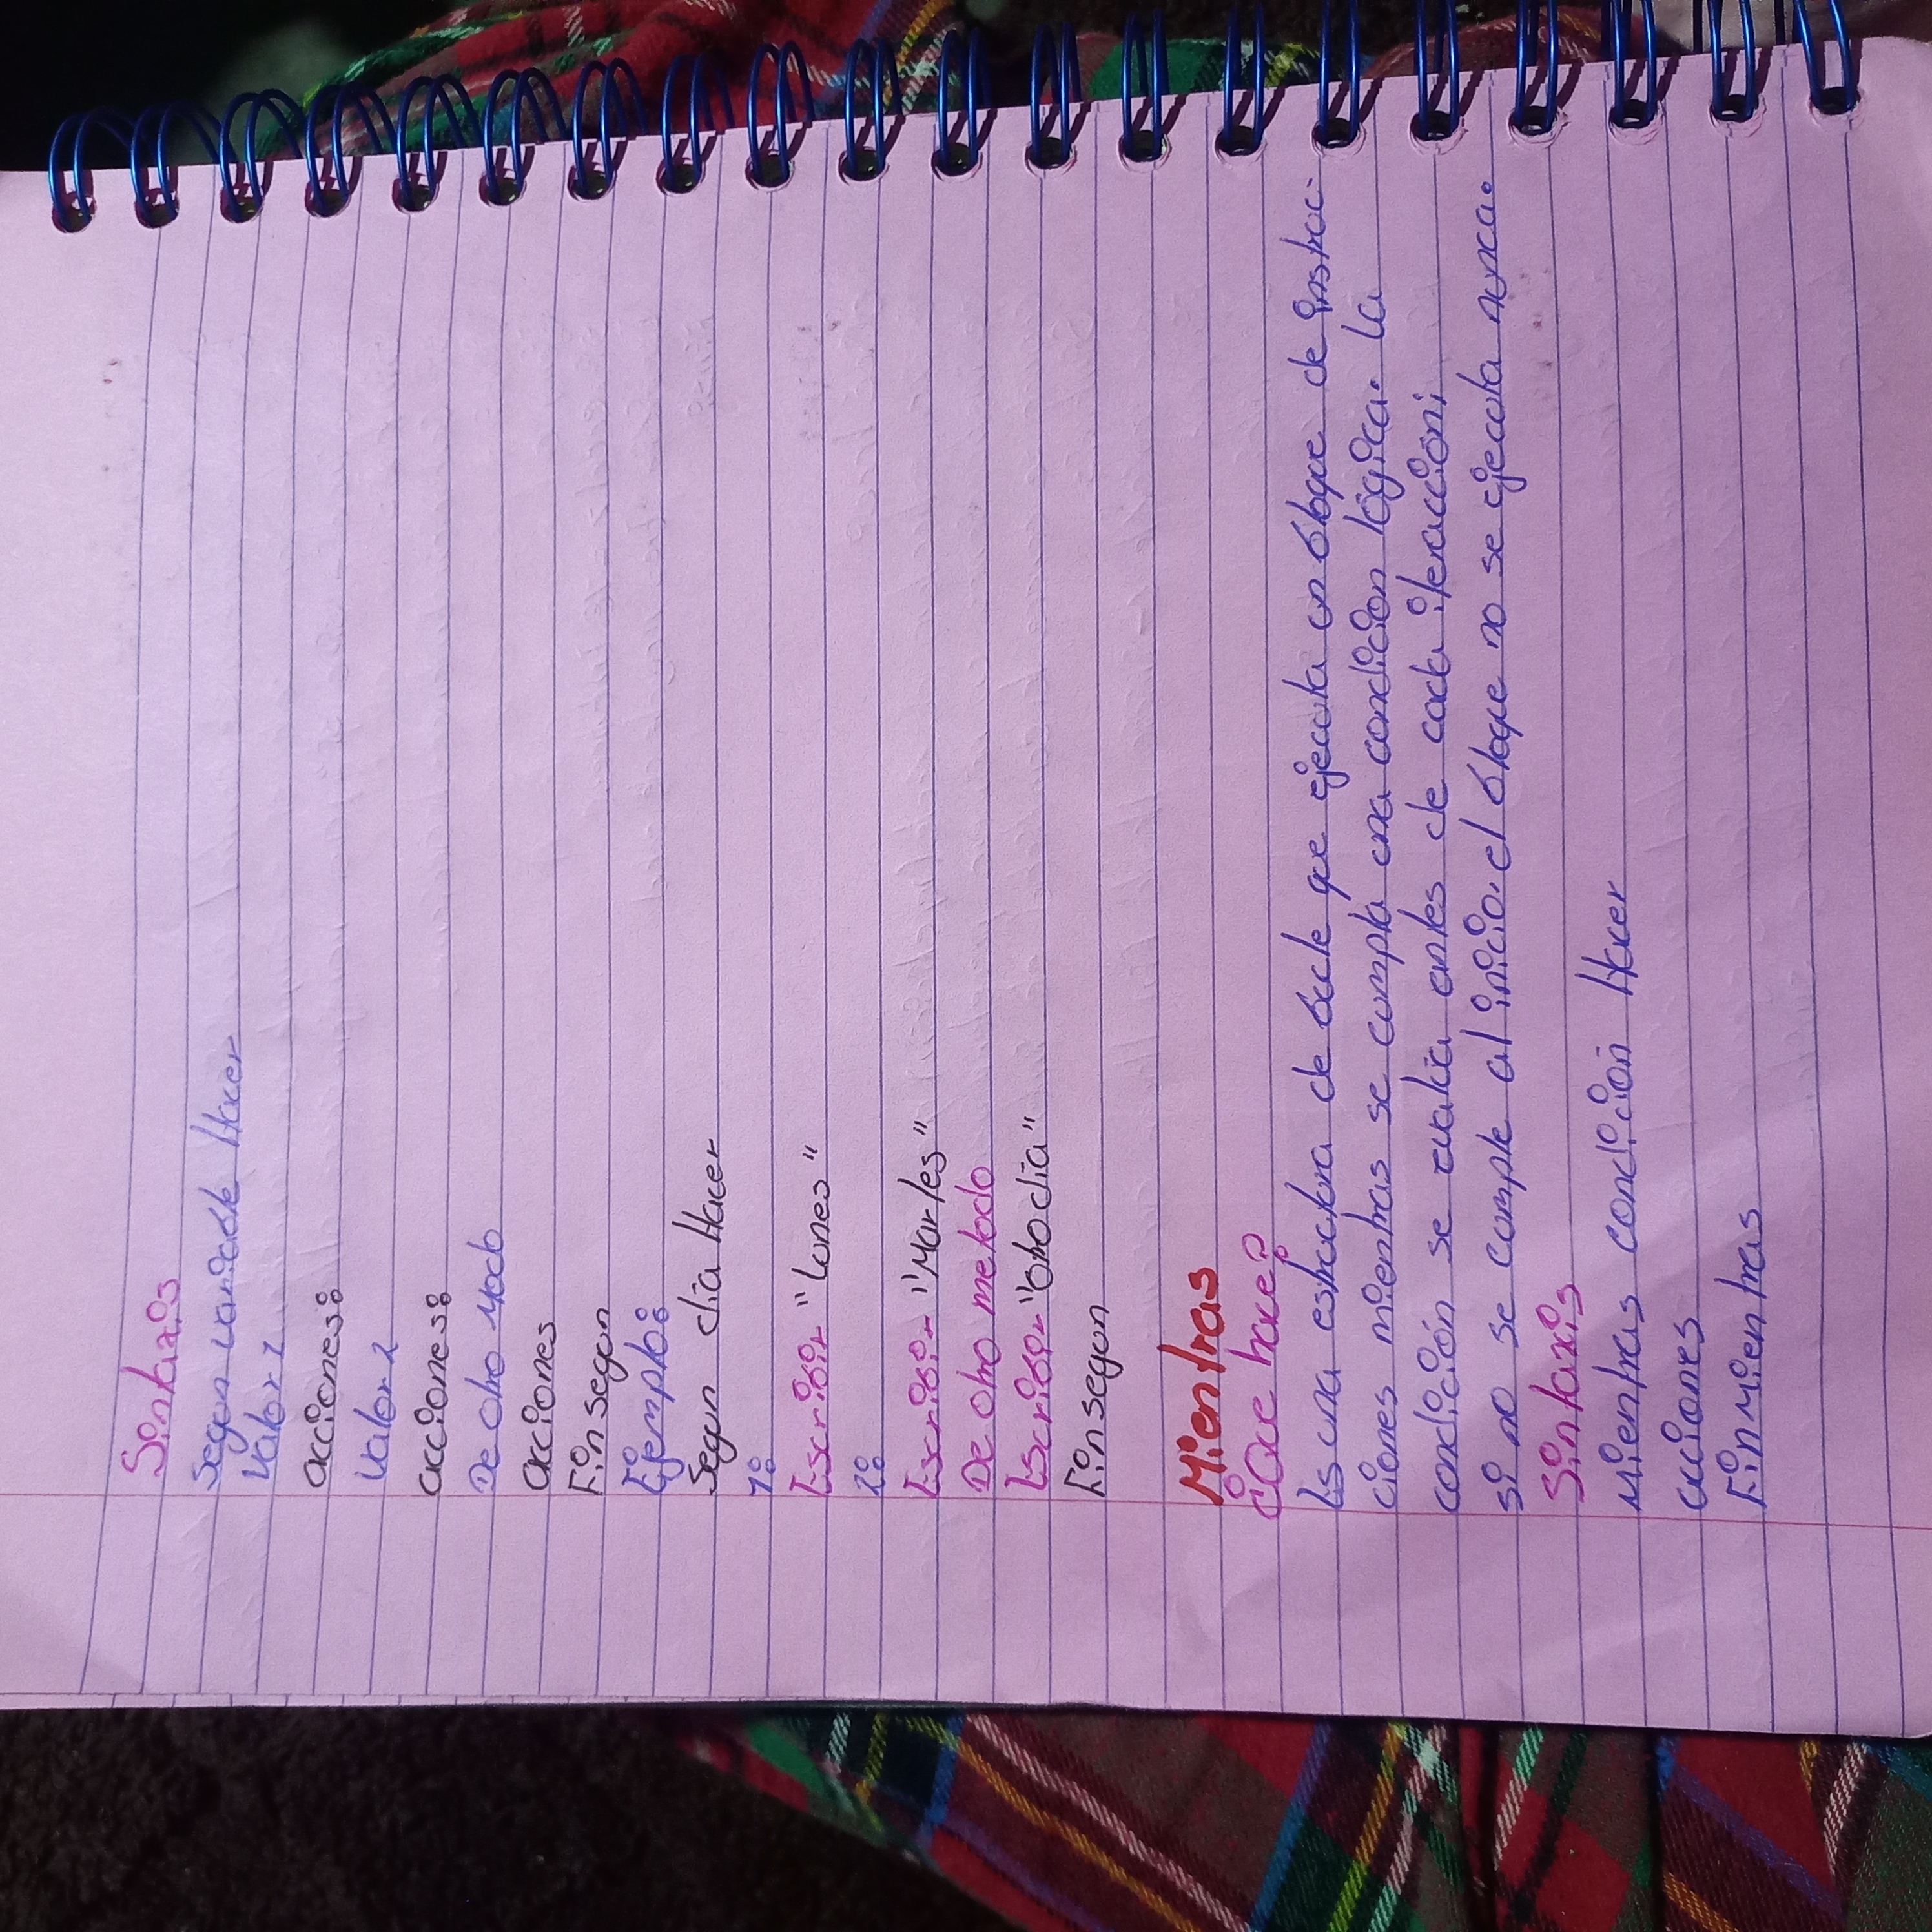 Sintaxis
Segun variable Hacer
Valor 1
acciones:
Valor 2
acciones:
De otro Modo
acciones
Fin segun
Ejemplo:
Segun dia Hacer
1:
Escribir "lunes"
2:
Escribir "Martes"
De otro metodo
Escribir "otro dia"
Fin segun
Mientras
¿Que hace?
Es una estructura de bucle que ejecuta un bloque de instruc-
ciones mientras se cumpla una condicion lógica. La
condición se evalúa antes de cada iteracción;
si no se cumple al inicio, el bloque no se ejecuta nunca.
Sintaxis
Mientras condición Hacer
acciones
Fin Mientras